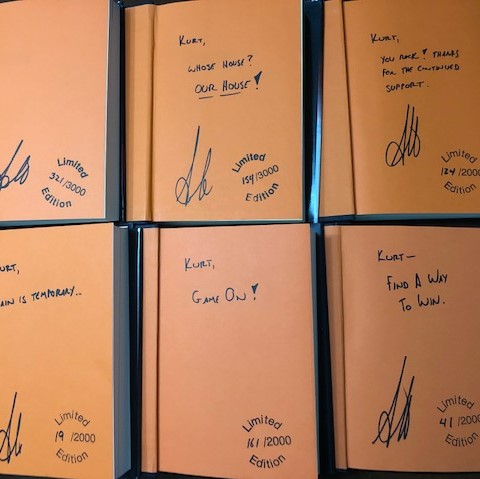 Limited
321/3000
Edition
KURT,
WHOSE HOUSE?
OUR HOUSE!
Limited
154/3000
Edition
KURT,
YOU ROCK! THANKS
FOR THE CONTINUED
SUPPORT.
Limited
124/2000
Edition
KURT,
PAIN IS TEMPORARY...
Limited
19/2000
Edition
KURT,
GAME ON!
Limited
161/2000
Edition
KURT—
FIND A WAY
TO WIN.
Limited
41/2000
Edition